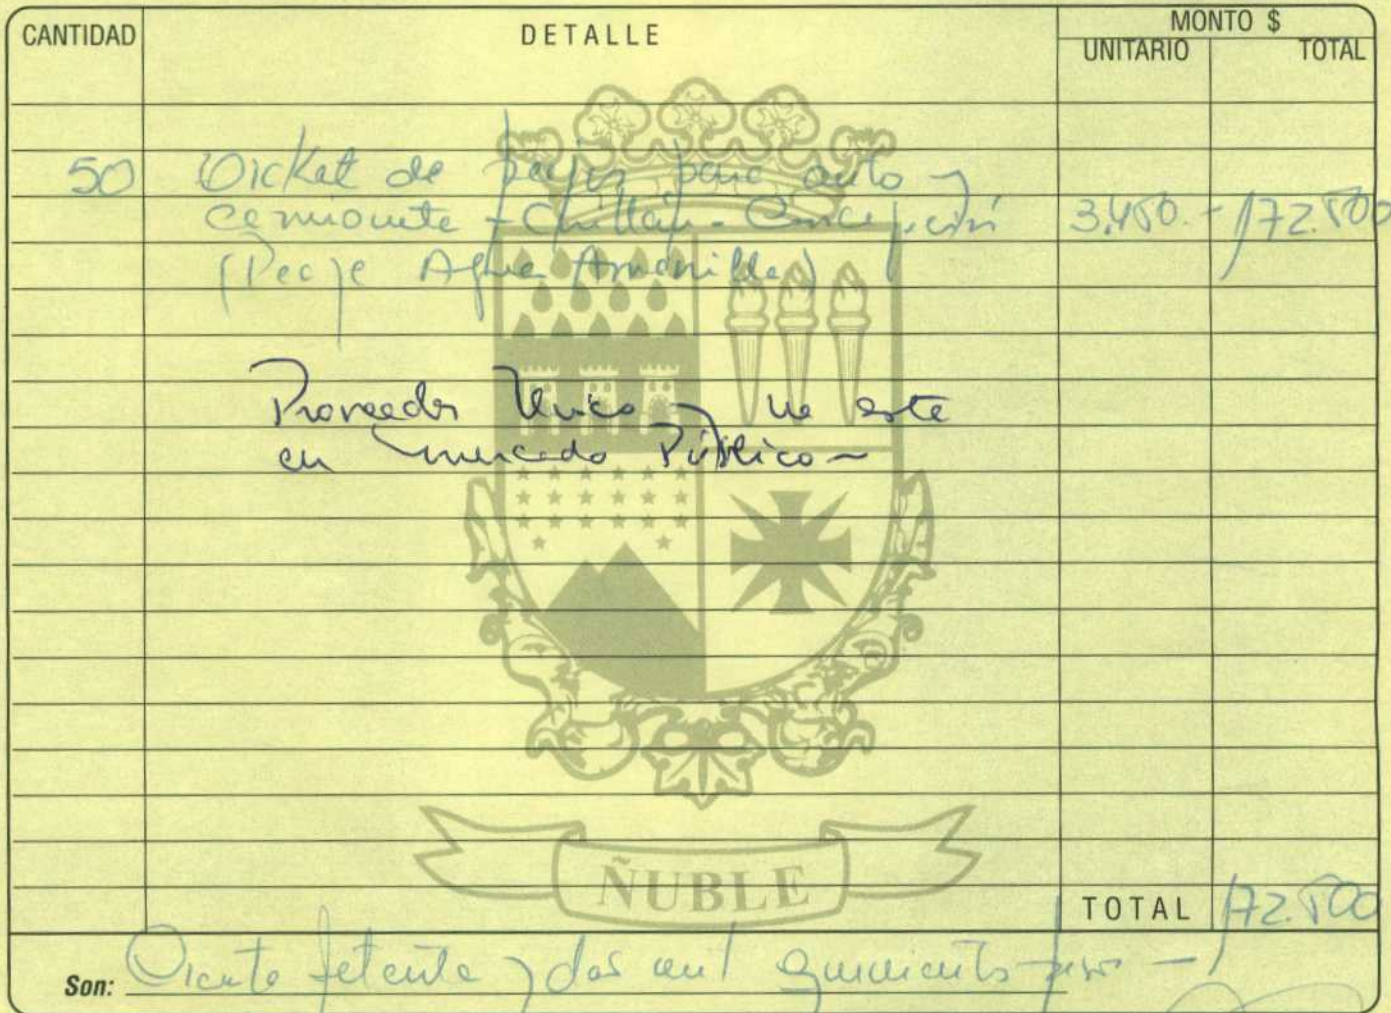 CANTIDAD DETALLE MONTO $
UNITARIO TOTAL
50 Ticket de peajes para auto y
camioneta - Chillán - Concepción 3.450.- 172.500
(Peaje Agua Amarilla)
Proveedor Unico y no este
en mercado Público -
ÑUBLE
TOTAL 172.500
Son: Ciento setenta y dos mil quinientos pesos -